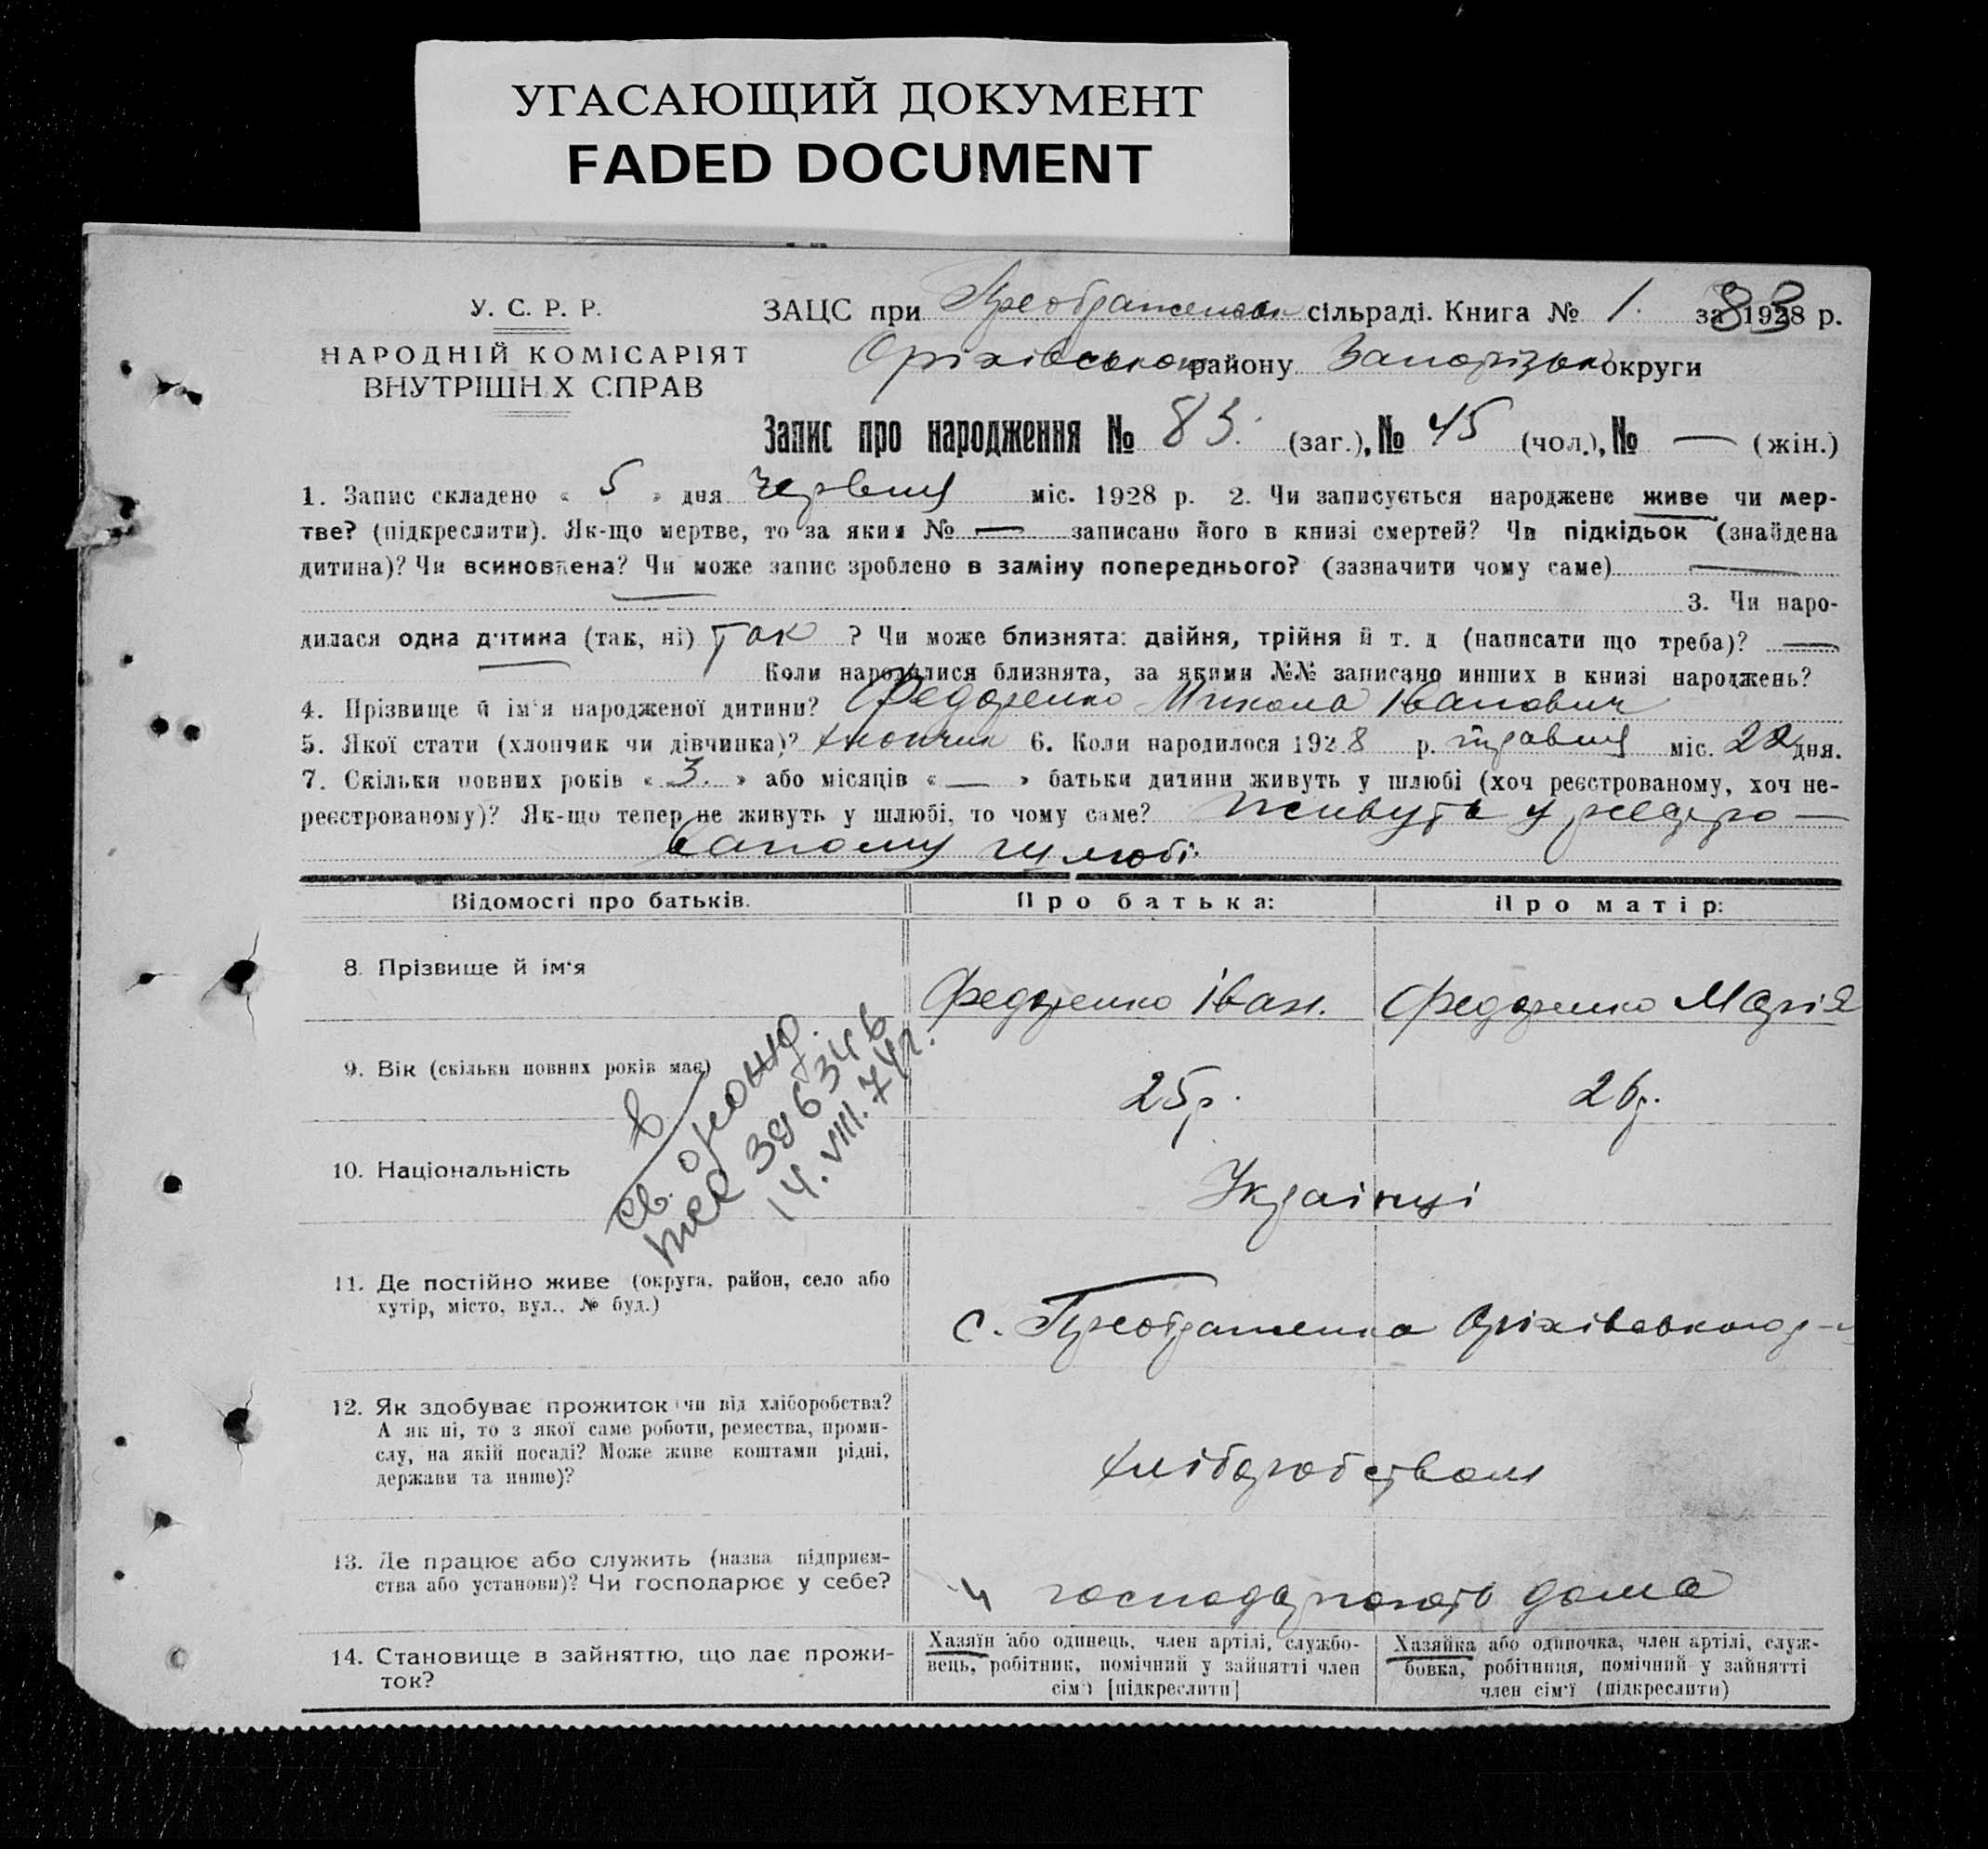 УГАСАЮЩИЙ ДОКУМЕНТ
FADED DOCUMENT
У. С. Р. Р.
НАРОДНІЙ КОМІСАРІЯТ
ВНУТРІШН.Х СПРАВ
ЗАЦС при Преображенськ сільраді. Книга № 1. за 1928 р.
83
Оріхівського району Запорізьк округи
Запис про народження № 83. (заг.), № 45 (чол.), № — (жін.)
1. Запис складено « 5 » дня червня міс. 1928 р. 2. Чи записується народжене живе чи мер-
тве? (підкреслити). Як-що мертве, то за яким № — записано його в книзі смертей? Чи підкідьок (знайдена
дитина)? Чи всиновлена? Чи може запис зроблено в заміну попереднього? (зазначити чому саме) —
3. Чи наро-
дилася одна дитина (так, ні) Так ? Чи може близнята: двійня, трійня й т. д (написати що треба)? —
Коли народилися близнята, за якими №№ записано инших в книзі народжень?
4. Прізвище й ім'я народженої дитини? Федоренко Микола Іванович
5. Якої стати (хлопчик чи дівчинка)? хлопчик 6. Коли народилося 1928 р. травня міс. 22 дня.
7. Скільки повних років « 3. » або місяців « — » батьки дитини живуть у шлюбі (хоч реєстрованому, хоч не-
реєстрованому)? Як-що тепер не живуть у шлюбі, то чому саме? живуть у реєстро—
ваному шлюбі.
Відомості про батьків. Про батька: Про матір:
8. Прізвище й ім'я Федоренко Іван. Федоренко Марія
9. Вік (скільки повних років має) 25р. 26р.
в
св. о рожд.
14. VIII. 74г.
10. Національність Українці
11. Де постійно живе (округа, район, село або
хутір, місто, вул., № буд.)
с. Преображенка Оріхівського р-н
12. Як здобуває прожиток чи від хліборобства?
А як ні, то з якої саме роботи, ремества, проми-
слу, на якій посаді? Може живе коштами рідні,
держави та инше)?
хліборобством
13. Де працює або служить (назва підприєм-
ства або установи)? Чи господарює у себе?
господарюють дома
14. Становище в зайняттю, що дає прожи-
ток?
Хазяїн або одинець, член артілі, службо-
вець, робітник, помічний у зайнятті член
сім'ї [підкреслити]
Хазяйка або одиночка, член артілі, служ-
бовка, робітниця, помічний у зайнятті
член сім'ї (підкреслити)